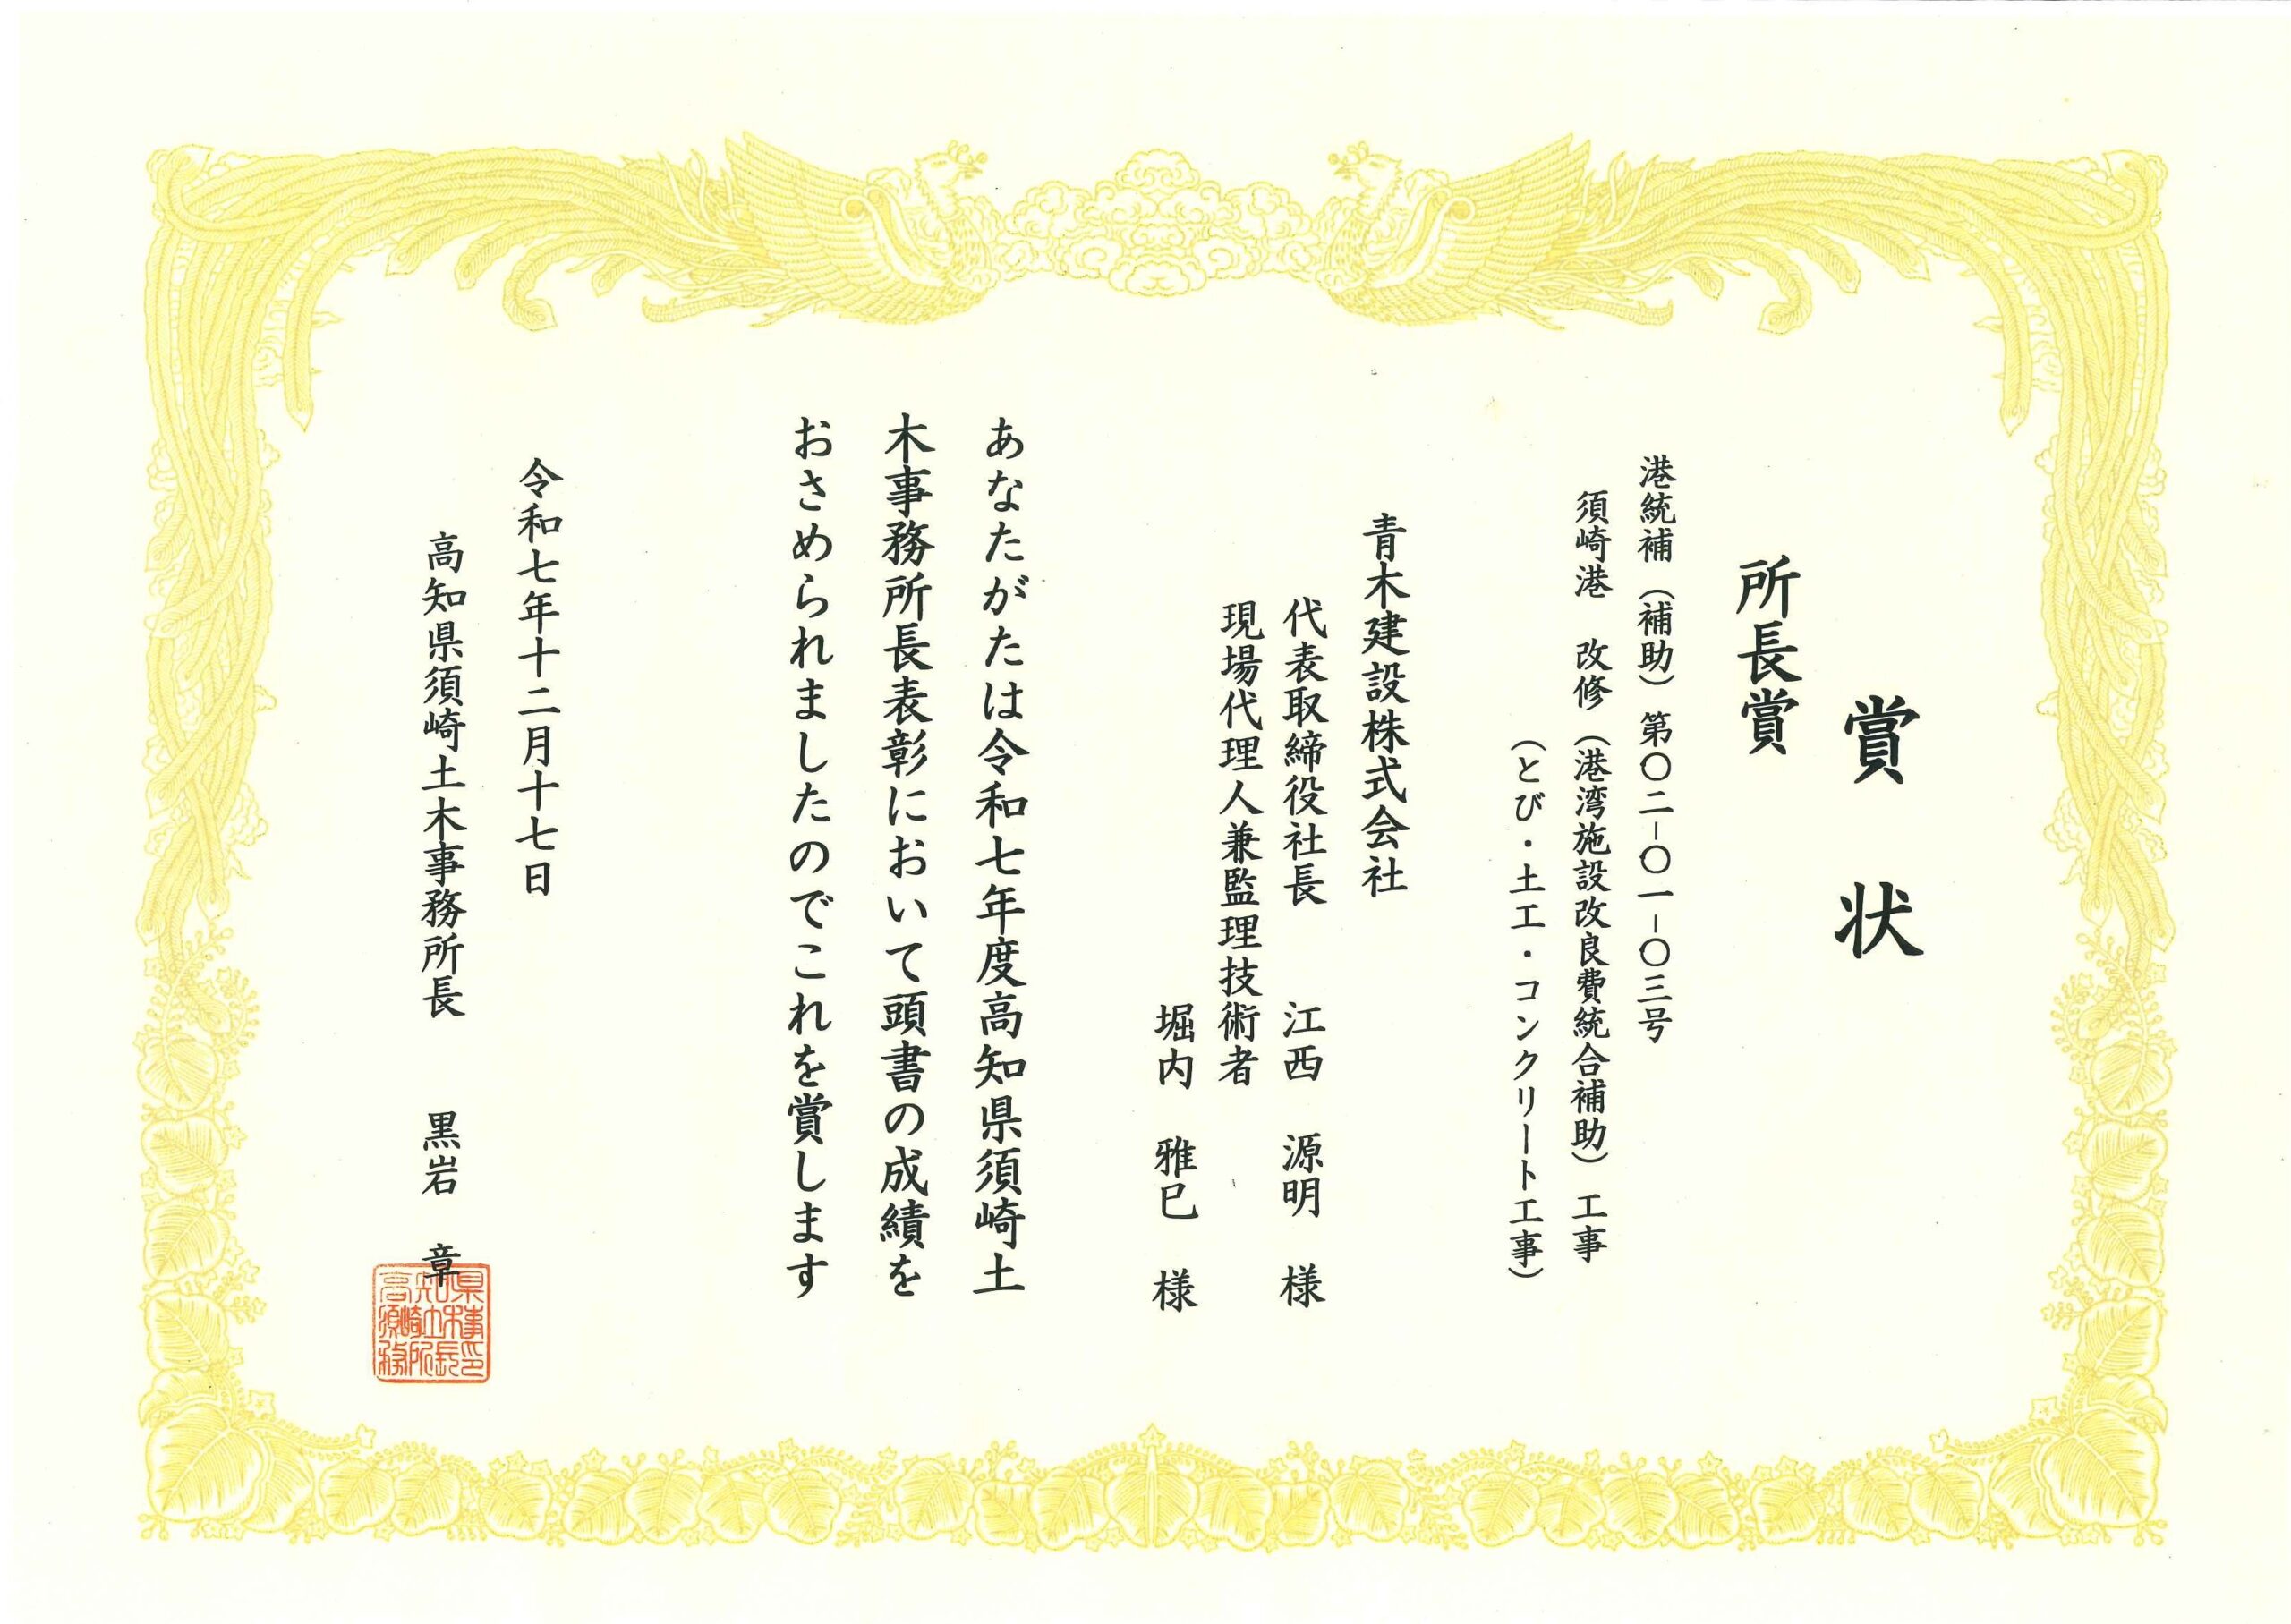 賞状
所長賞
港統補(補助)第〇二-〇一-〇三号
須崎港 改修(港湾施設改良費統合補助)工事
(とび・土工・コンクリート工事)
青木建設株式会社
代表取締役社長 江西 源明 様
現場代理人兼監理技術者
堀内 雅巳 様
あなたがたは令和七年度高知県須崎土
木事務所長表彰において頭書の成績を
おさめられましたのでこれを賞します
令和七年十二月十七日
高知県須崎土木事務所長 黒岩 章
高知県
須崎土木事
務所長印